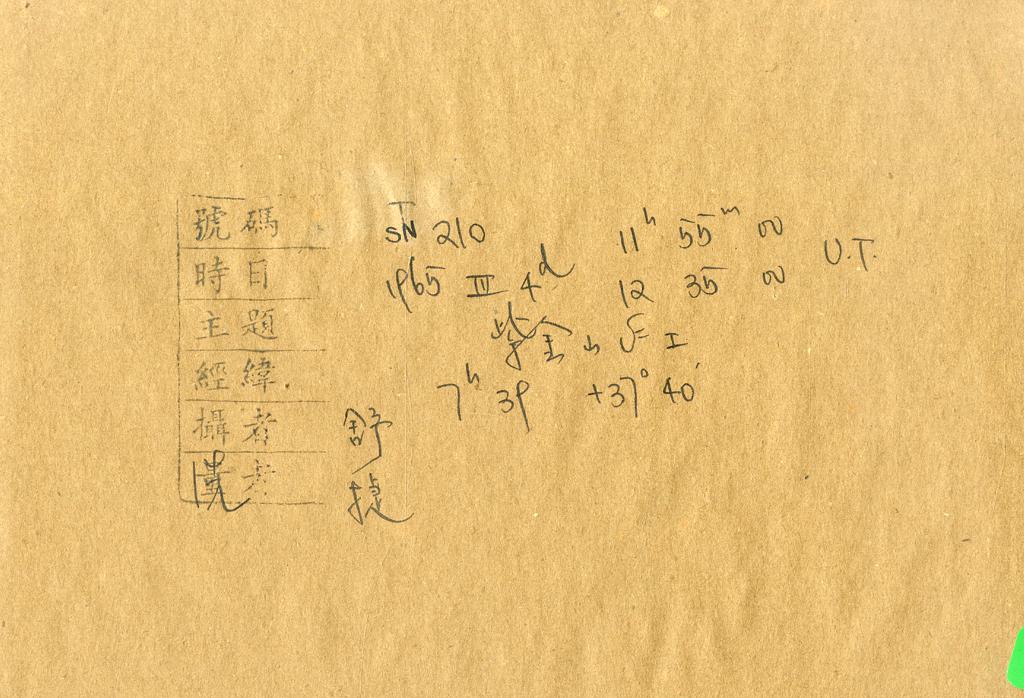 號碼 SN 210 11h 55m 00
時日 1965 III 4d 12 35 00 U.T.
主題 紫金山 I
經緯 7h 39 +37° 40'
攝者 舒
洗者 捷